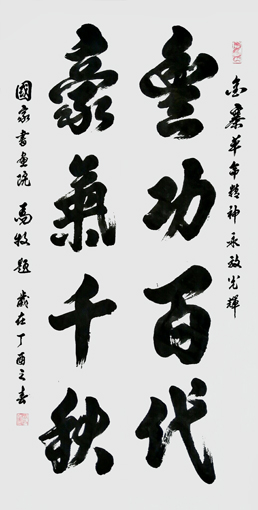 金寨革命精神永放光輝
豐功百代
豪氣千秋
國家書画院 馬牧題 歲在丁酉之春